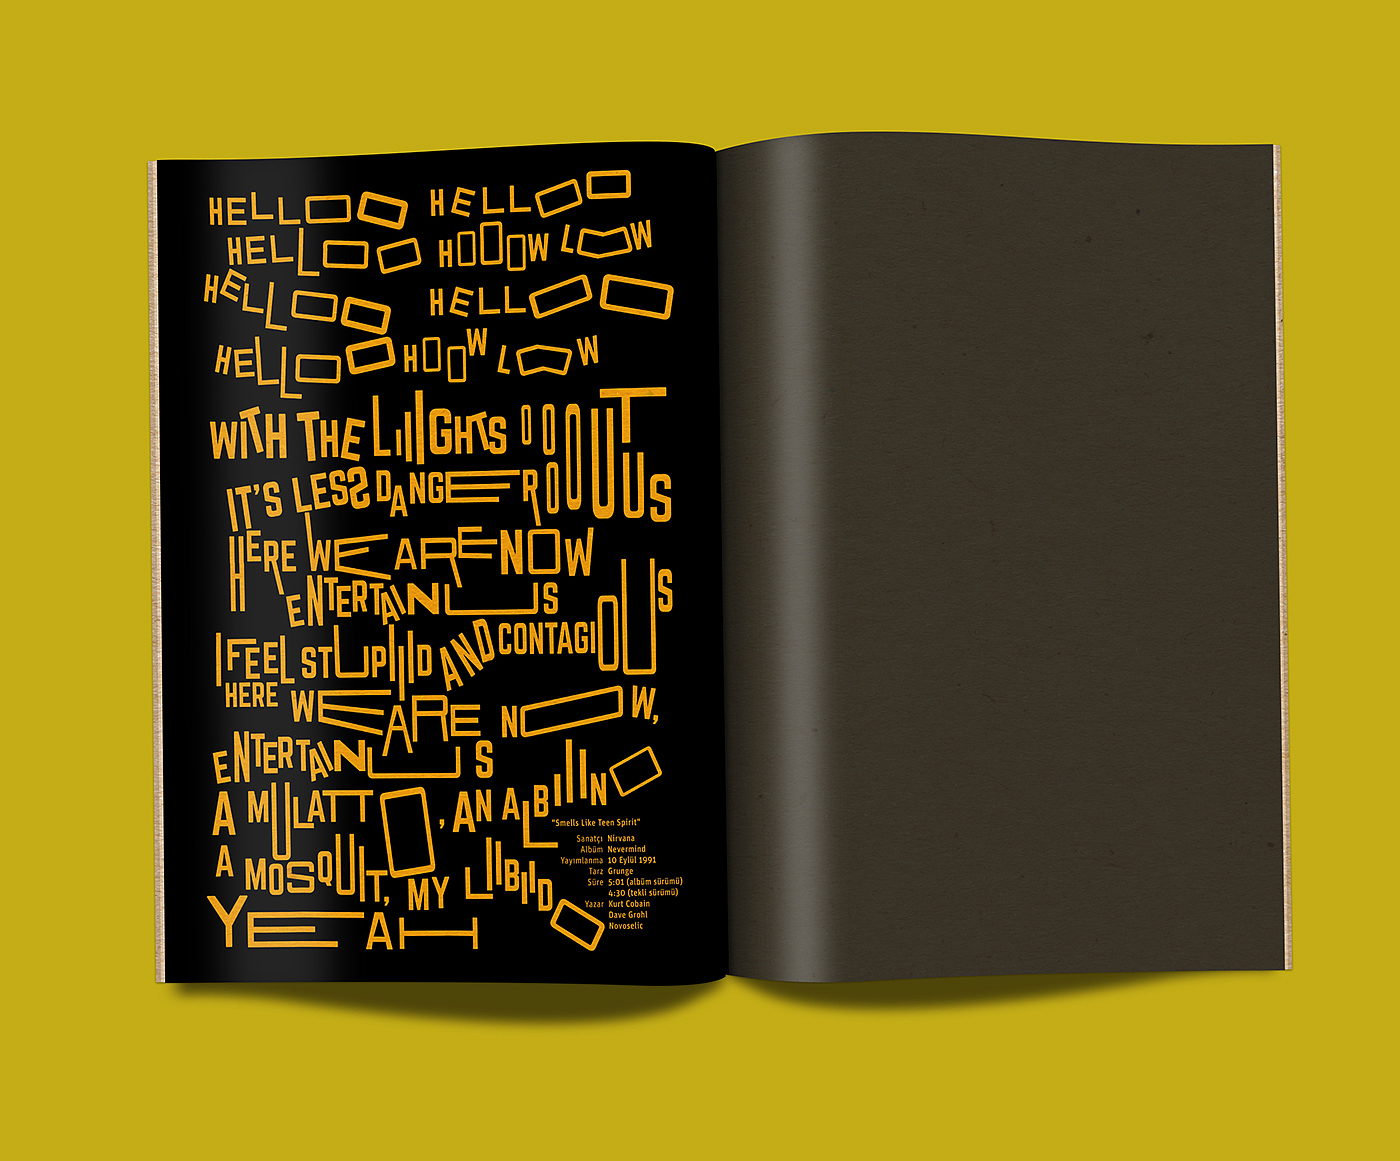 HELLOO HELLOO
HELLOO HOOOW LOW
HELLOO HELLOO
HELLOO HOOW LOW
WITH THE LIIIGHTS OOOUT
IT'S LESS DANGEROOUS
HERE WE ARE NOW
ENTERTAIN US
I FEEL STUPIIID AND CONTAGIOUS
HERE WE ARE NOW,
ENTERTAIN US
A MULATTO, AN ALBIIINO
A MOSQUIIT, MY LIIBIIDO
YEAH
"Smells Like Teen Spirit"
Sanatçı Nirvana
Albüm Nevermind
Yayımlanma 10 Eylül 1991
Tarz Grunge
Süre 5:01 (albüm sürümü)
4:30 (tekli sürümü)
Yazar Kurt Cobain
Dave Grohl
Novoselic